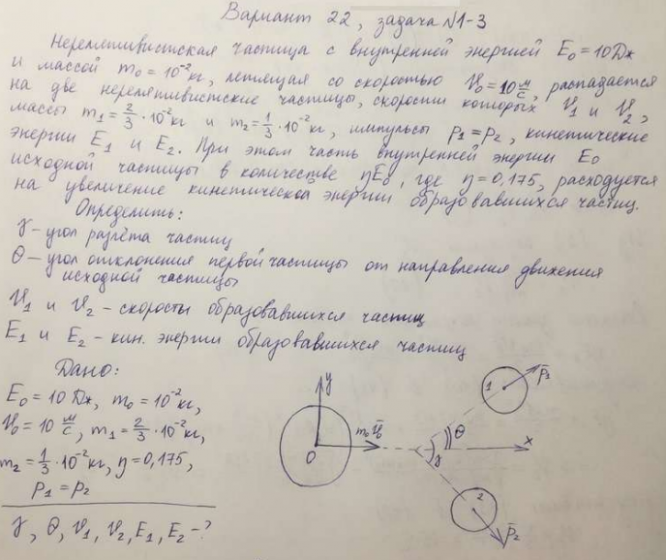 Вариант 22, задача №1-3
Нерелятивистская частица с внутренней энергией E₀ = 10 Дж
и массой m₀ = 10⁻² кг, летящая со скоростью V₀ = 10 м/с, распадается
на две нерелятивистские частицы, скорости которых V₁ и V₂,
массы m₁ = 2/3 · 10⁻² кг и m₂ = 1/3 · 10⁻² кг, импульсы p₁ = p₂, кинетические
энергии E₁ и E₂. При этом часть внутренней энергии E₀
исходной частицы в количестве ηE₀, где η = 0,175, расходуется
на увеличение кинетической энергии образовавшихся частиц.
Определить:
γ – угол разлёта частиц
θ – угол отклонения первой частицы от направления движения
исходной частицы
V₁ и V₂ – скорости образовавшихся частиц
E₁ и E₂ – кин. энергии образовавшихся частиц
Дано:
E₀ = 10 Дж, m₀ = 10⁻² кг,
V₀ = 10 м/с, m₁ = 2/3 · 10⁻² кг,
m₂ = 1/3 · 10⁻² кг, η = 0,175,
p₁ = p₂
γ, θ, V₁, V₂, E₁, E₂ – ?
y
O
m₀ V̄₀
γ
θ
x
1
p̄₁
2
p̄₂